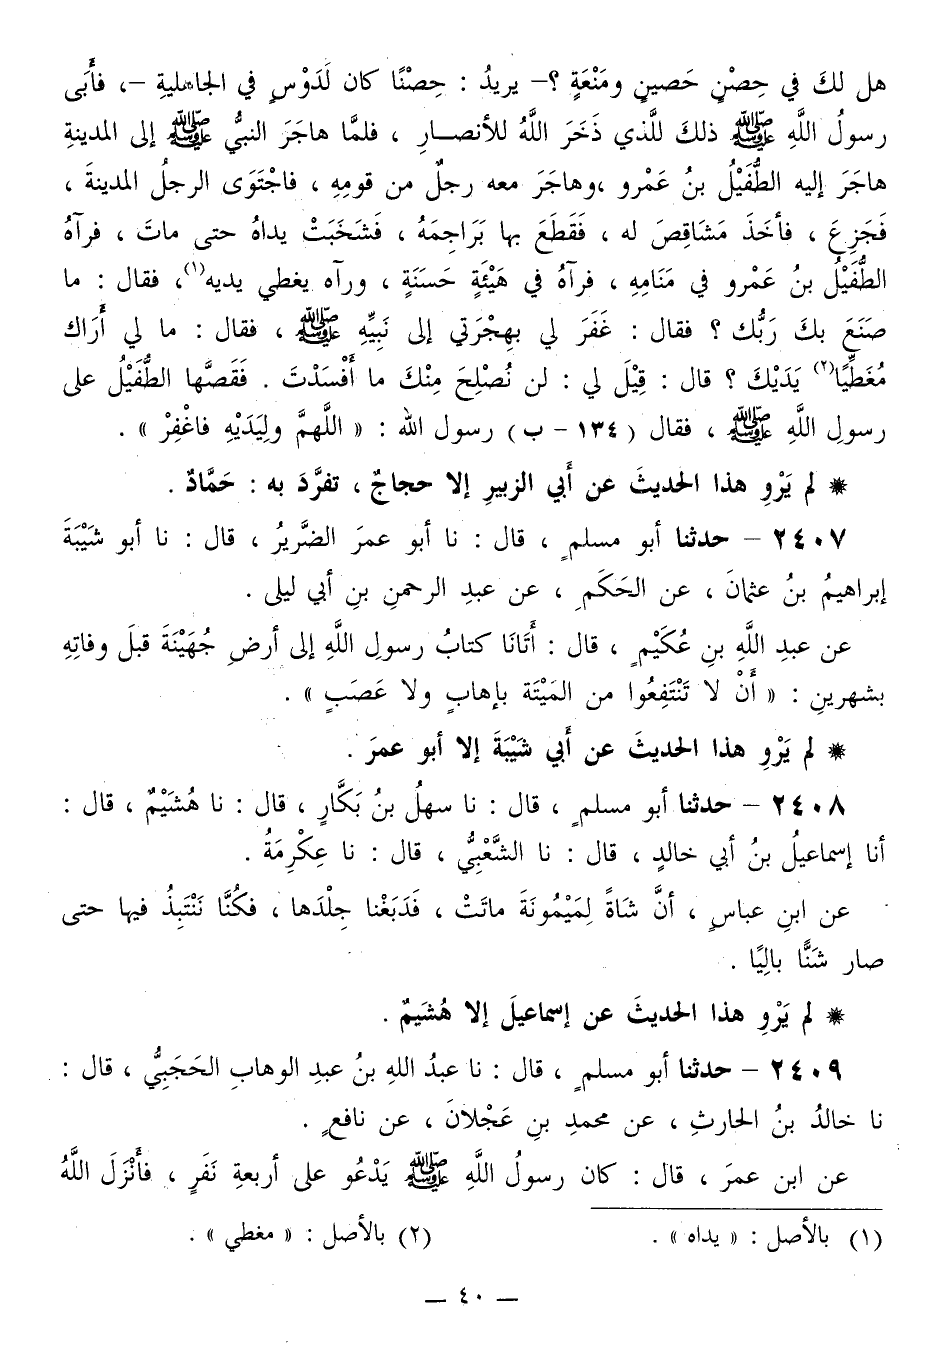 هل لكَ في حِصْنٍ حَصينٍ ومَنْعَةٍ ؟– يريدُ : حِصْنًا كان لَدَوْسٍ في الجاهلية –، فأَبَى
رسولُ اللَّهِ ﷺ ذلكَ للَّذي ذَخَرَ اللَّهُ للأنصـــارِ ، فلمَّا هاجَرَ النبيُّ ﷺ إلى المدينةِ
هاجَرَ إليه الطُّفَيْلُ بنُ عَمْرو ،وهاجَرَ معه رجلٌ من قومِهِ ، فاجْتَوَى الرجلُ المدينةَ ،
فَجَزِعَ ، فأخَذَ مَشَاقِصَ له ، فَقَطَعَ بها بَرَاجِمَهُ ، فَشَخَبَتْ يداهُ حتى ماتَ ، فرآهُ
الطُّفَيْلُ بنُ عَمْرو في مَنَامِهِ ، فرآهُ في هَيْئَةٍ حَسَنَةٍ ، ورآه يغطي يديه(١)، فقال : ما
صَنَعَ بكَ رَبُّك ؟ فقال : غَفَرَ لي بِهِجْرَتي إلى نَبِيِّهِ ﷺ ، فقال : ما لي أَرَاك
مُغَطِّيًا(٢) يَدَيْكَ ؟ قال : قِيْلَ لي : لن نُصْلِحَ مِنْكَ ما أَفْسَدْتَ . فَقَصَّها الطُّفَيْلُ على
رسولِ اللَّهِ ﷺ ، فقال (١٣٤ – ب) رسول الله : « اللَّهمَّ ولِيَدَيْهِ فاغْفِرْ » .
* لم يَرْوِ هذا الحديثَ عن أَبي الزبيرِ إلا حجاجٌ ، تفرَّدَ به : حَمَّادٌ .
٢٤٠٧ – حدثنا أبو مسلمٍ ، قال : نا أبو عمرَ الضَّريرُ ، قال : نا أبو شَيْبَةَ
إبراهيمُ بنُ عثمانَ ، عن الحَكَمِ ، عن عبدِ الرحمنِ بنِ أبي ليلى .
عن عبدِ اللَّهِ بنِ عُكَيْمٍ ، قال : أَتَانَا كتابُ رسولِ اللَّهِ إلى أرضِ جُهَيْنَةَ قبلَ وفاتِهِ
بشهرينِ : « أَنْ لا تَنْتَفِعُوا من المَيْتَة بإهابٍ ولا عَصَبٍ » .
* لم يَرْوِ هذا الحديثَ عن أَبي شَيْبَةَ إلا أبو عمرَ .
٢٤٠٨ – حدثنا أبو مسلمٍ ، قال : نا سهلُ بنُ بَكَّارٍ ، قال : نا هُشَيْمٌ ، قال :
أنا إسماعيلُ بنُ أبي خالدٍ ، قال : نا الشَّعْبِيُّ ، قال : نا عِكْرِمَةُ .
عن ابنِ عباسٍ ، أنَّ شَاةً لِمَيْمُونَةَ ماتَتْ ، فَدَبَغْنا جِلْدَها ، فكُنَّا نَنْتَبِذُ فيها حتى
صار شَنًّا بالِيًا .
* لم يَرْوِ هذا الحديثَ عن إسماعيلَ إلا هُشَيمٌ .
٢٤٠٩ – حدثنا أبو مسلمٍ ، قال : نا عبدُ اللهِ بنُ عبدِ الوهابِ الحَجَبِيُّ ، قال :
نا خالدُ بنُ الحارثِ ، عن محمدِ بنِ عَجْلانَ ، عن نافعٍ .
عن ابن عمرَ ، قال : كان رسولُ اللَّهِ ﷺ يَدْعُو على أربعةِ نَفَرٍ ، فأَنْزَلَ اللَّهُ
(١) بالأصل : « يداه » . (٢) بالأصل : « مغطي » .
– ٤٠ –